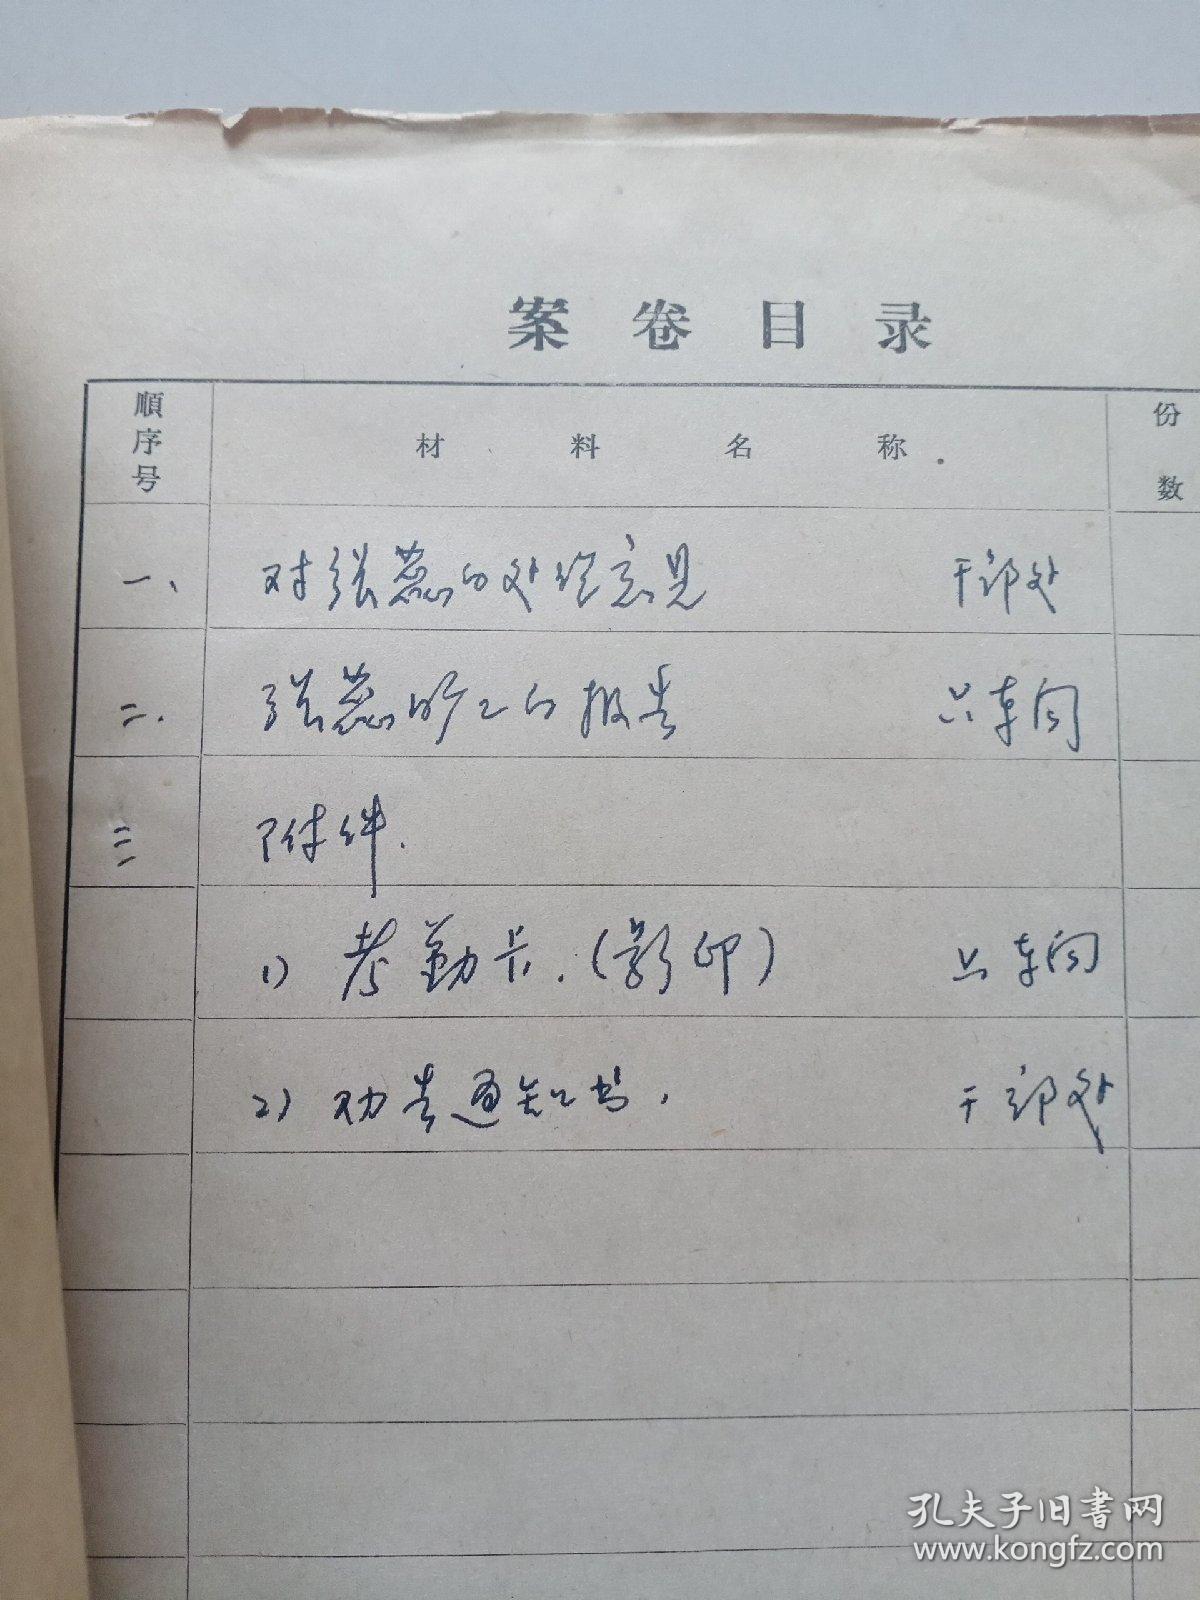 案卷目录
順序号 材料名称 份数
一、 对张蕊的处理意见 干部处
二. 张蕊旷工的报告 车间
三 附件.
1) 考勤卡.(影印) 车间
2) 劝告通知书. 干部处
孔夫子旧书网
www.kongfz.com